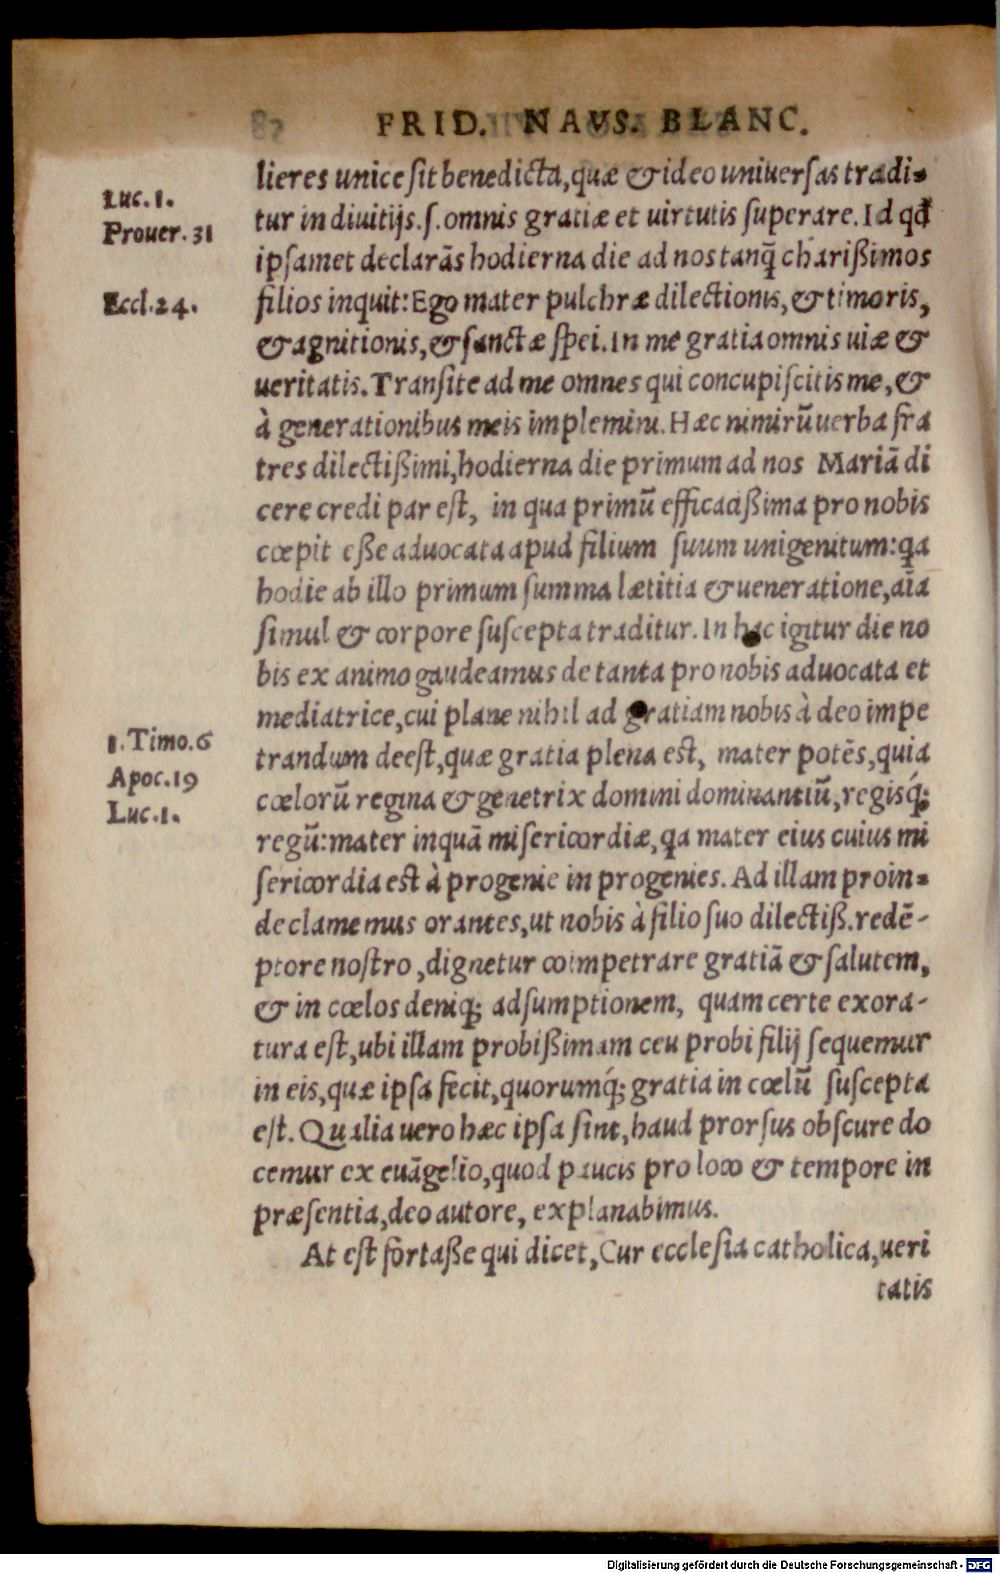 FRID. NAVS. BLANC.
lieres unice sit benedicta, quæ & ideo uniuersas tradi-
Luc. 1.
tur in diuitijs. s. omnis gratiæ et uirtutis superare. Id qđ
Prouer. 31
ipsamet declarãs hodierna die ad nos tanq̃ charißimos
Eccl. 24.
filios inquit: Ego mater pulchræ dilectionis, & timoris,
& agnitionis, & sanctæ spei. In me gratia omnis uiæ &
ueritatis. Transite ad me omnes qui concupiscitis me, &
à generationibus meis implemini. Hæc nimirũ uerba fra
tres dilectißimi, hodierna die primum ad nos Mariã di
cere credi par est, in qua primũ efficacißima pro nobis
cœpit eße aduocata apud filium suum unigenitum: qa
hodie ab illo primum summa lætitia & ueneratione, aĩa
simul & corpore suscepta traditur. In hac igitur die no
bis ex animo gaudeamus de tanta pro nobis aduocata et
mediatrice, cui plane nihil ad gratiam nobis à deo impe
1. Timo. 6
trandum deest, quæ gratia plena est, mater potẽs, quia
Apoc. 19
cœlorũ regina & genetrix domini dominantiũ, regisq́;
Luc. 1.
regũ: mater inquã misericordiæ, qa mater eius cuius mi
sericordia est à progenie in progenies. Ad illam proin-
de clamemus orantes, ut nobis à filio suo dilectiß. redẽ-
ptore nostro, dignetur coimpetrare gratiã & salutem,
& in cœlos deniq; adsumptionem, quam certe exora-
tura est, ubi illam probißimam ceu probi filij sequemur
in eis, quæ ipsa fecit, quorumq́; gratia in cœlũ suscepta
est. Qualia uero hæc ipsa sint, haud prorsus obscure do
cemur ex euãgelio, quod paucis pro loco & tempore in
præsentia, deo autore, explanabimus.
At est fortaße qui dicet, Cur ecclesia catholica, ueri
tatis
Digitalisierung gefördert durch die Deutsche Forschungsgemeinschaft - DFG